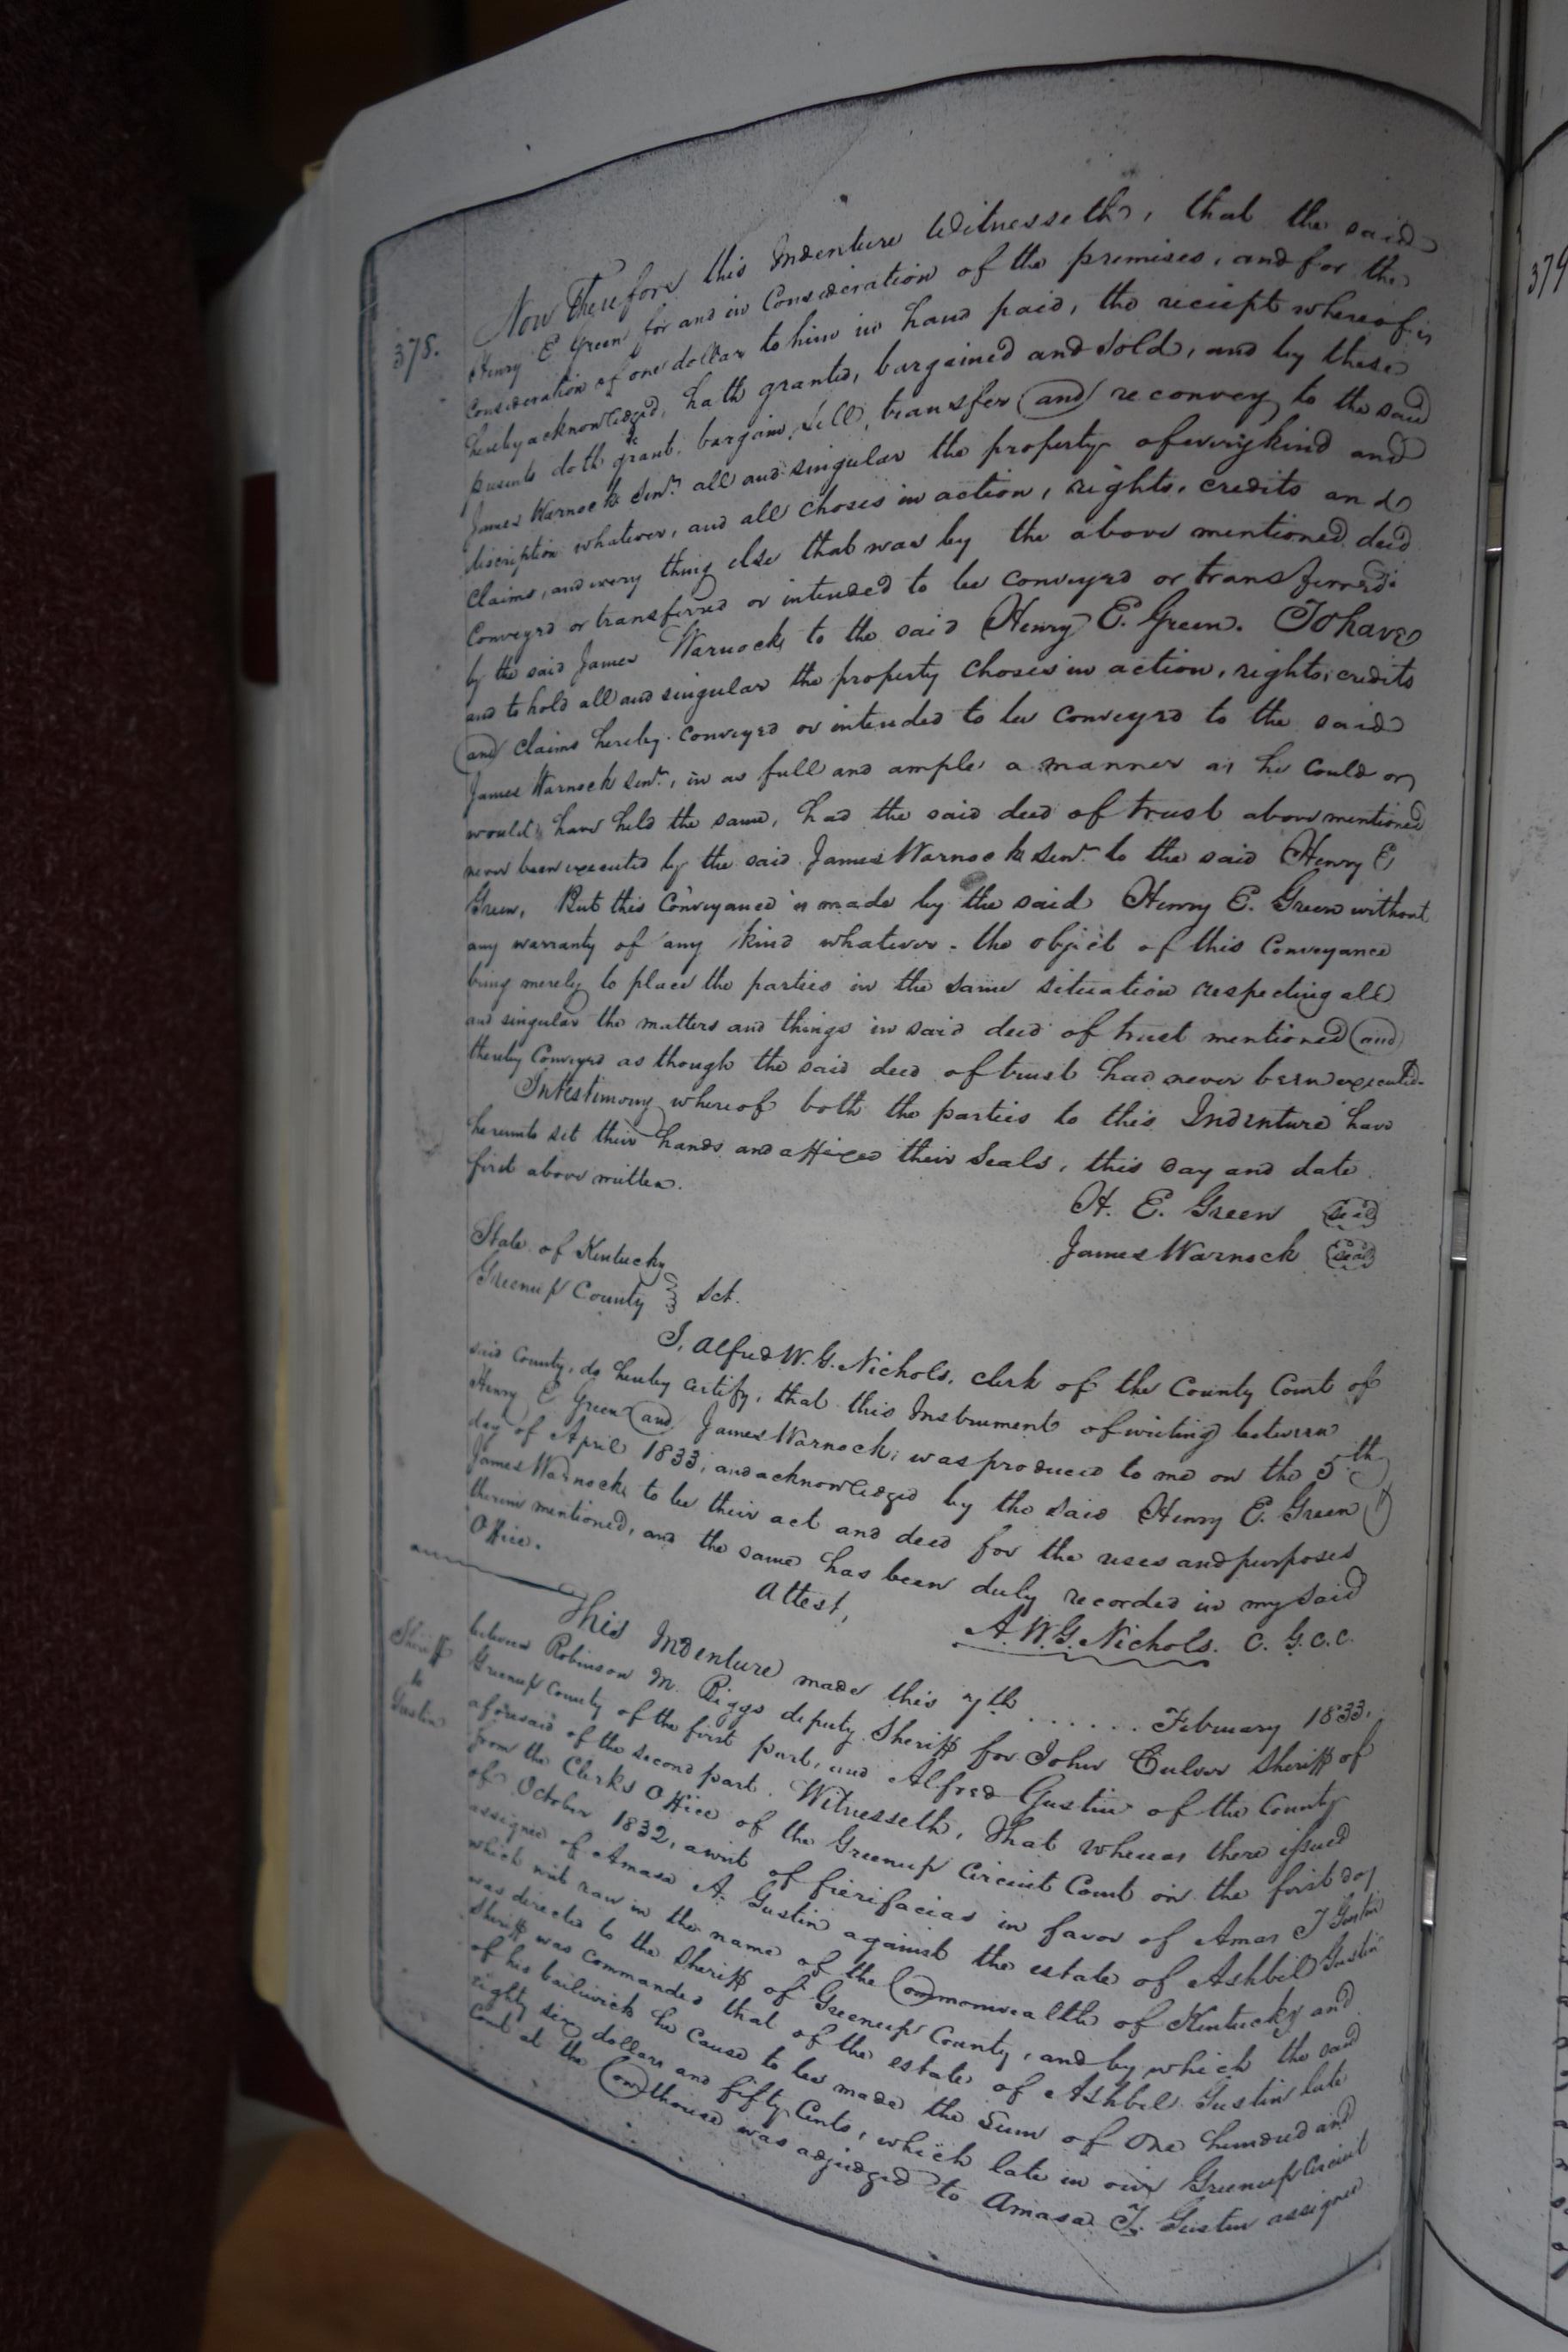 378.
Now Therefore this Indenture Witnesseth, that the said
Henry E Green for and in Consideration of the premises, and for the
Consideration of one dollar to him in hand paid, the reciept whereof is
hereby acknowledged, hath granted, bargained and sold, and by these
presents doth grant. bargain, sell, transfer and reconvey to the said
James Warnock Senr. all and singular the property of every kind and
discription whatever, and all choses in action, rights, credits and
Claims, and every thing else that was by the above mentioned deed
Conveyed or transferred or intended to be conveyed or transferred
by the said James Warnock to the said Henry E. Green. To have
and to hold all and singular the property choses in action, rights, credits
and claims hereby conveyed or intended to be conveyed to the said
James Warnock Senr., in as full and ample a manner as he could or
would have held the same, had the said deed of trust above mentioned
never been executed by the said James Warnock Senr. to the said Henry E
Green, But this Conveyance is made by the said Henry E. Green without
any warranty of any kind whatever - the object of this Conveyance
being merely to place the parties in the same situation respecting all
and singular the matters and things in said deed of trust mentioned and
thereby Conveyed as though the said deed of trust had never been executed.
In testimony whereof both the parties to this Indenture have
hereunto set their hands and affixed their Seals, this day and date
first above written.
H. E. Green Seal
James Warnock Seal
State of Kentucky
Greenup County } Sct.
I, Alfred W. G. Nichols, clerk of the County Court of
said County, do hereby certify, that this Instrument of writing between
Henry E Green and James Warnock, was produced to me on the 5th
day of April 1833, and acknowledged by the said Henry E. Green &
James Warnock to be their act and deed for the uses and purposes
therein mentioned, and the same has been duly recorded in my said
Office.
Attest,
A. W. G. Nichols. C. G. C. C.
Sheriff
to
Gustin
This Indenture made this 7th ...... February 1833.
between Robinson M. Biggs deputy Sheriff for John Culver Sheriff of
Greenup County of the first part, and Alfred Gustin of the County
aforesaid of the second part. Witnesseth, That whereas there issued
from the Clerks Office of the Greenup Circuit Court on the first day
of October 1832, a writ of fierifacias in favor of Amas T Gustin
assignee of Amasa A. Gustin against the estate of Ashbil Gustin
which writ ran in the name of the Commonwealth of Kentucky and
was directed to the Sheriff of Greenup County, and by which the said
Sheriff was commanded that of the estate of Ashbel Gustin late
of his bailiwick he cause to be made the Sum of One hundred and
eighty six dollars and fifty Cents, which late in our Greenup Circuit
Court at the Courthouse was adjudged to Amasa T. Gustin assignee
379